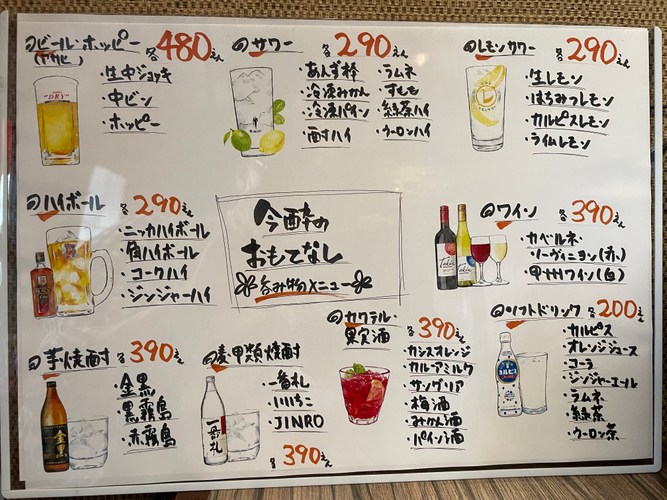 ビール・ホッピー 各480えん
(アサヒ)
・生中ジョッキ
・中ビン
・ホッピー
サワー 各290えん
・あんず棒
・冷凍みかん
・冷凍パイン
・酎ハイ
・ラムネ
・すもも
・緑茶ハイ
・ウーロンハイ
レモンサワー 各290えん
・生レモン
・はちみつレモン
・カルピスレモン
・ライムレモン
ハイボール 各290えん
・ニッカハイボール
・角ハイボール
・コークハイ
・ジンジャーハイ
今酔の
おもてなし
呑み物メニュー
ワイン 各390えん
・カベルネ
・ソーヴィニヨン(赤)
・甲州ワイン(白)
芋焼酎 各390えん
・金黒
・黒霧島
・赤霧島
金黒
麦・甲類焼酎
・一番札
・いいちこ
・JINRO
各390えん
一番札
カクテル・
果実酒
各390えん
・カシスオレンジ
・カルーアミルク
・サングリア
・梅酒
・みかん酒
・パイン酒
ソフトドリンク 各200えん
・カルピス
・オレンジジュース
・コーラ
・ジンジャーエール
・ラムネ
・緑茶
・ウーロン茶
カルピス
DRY